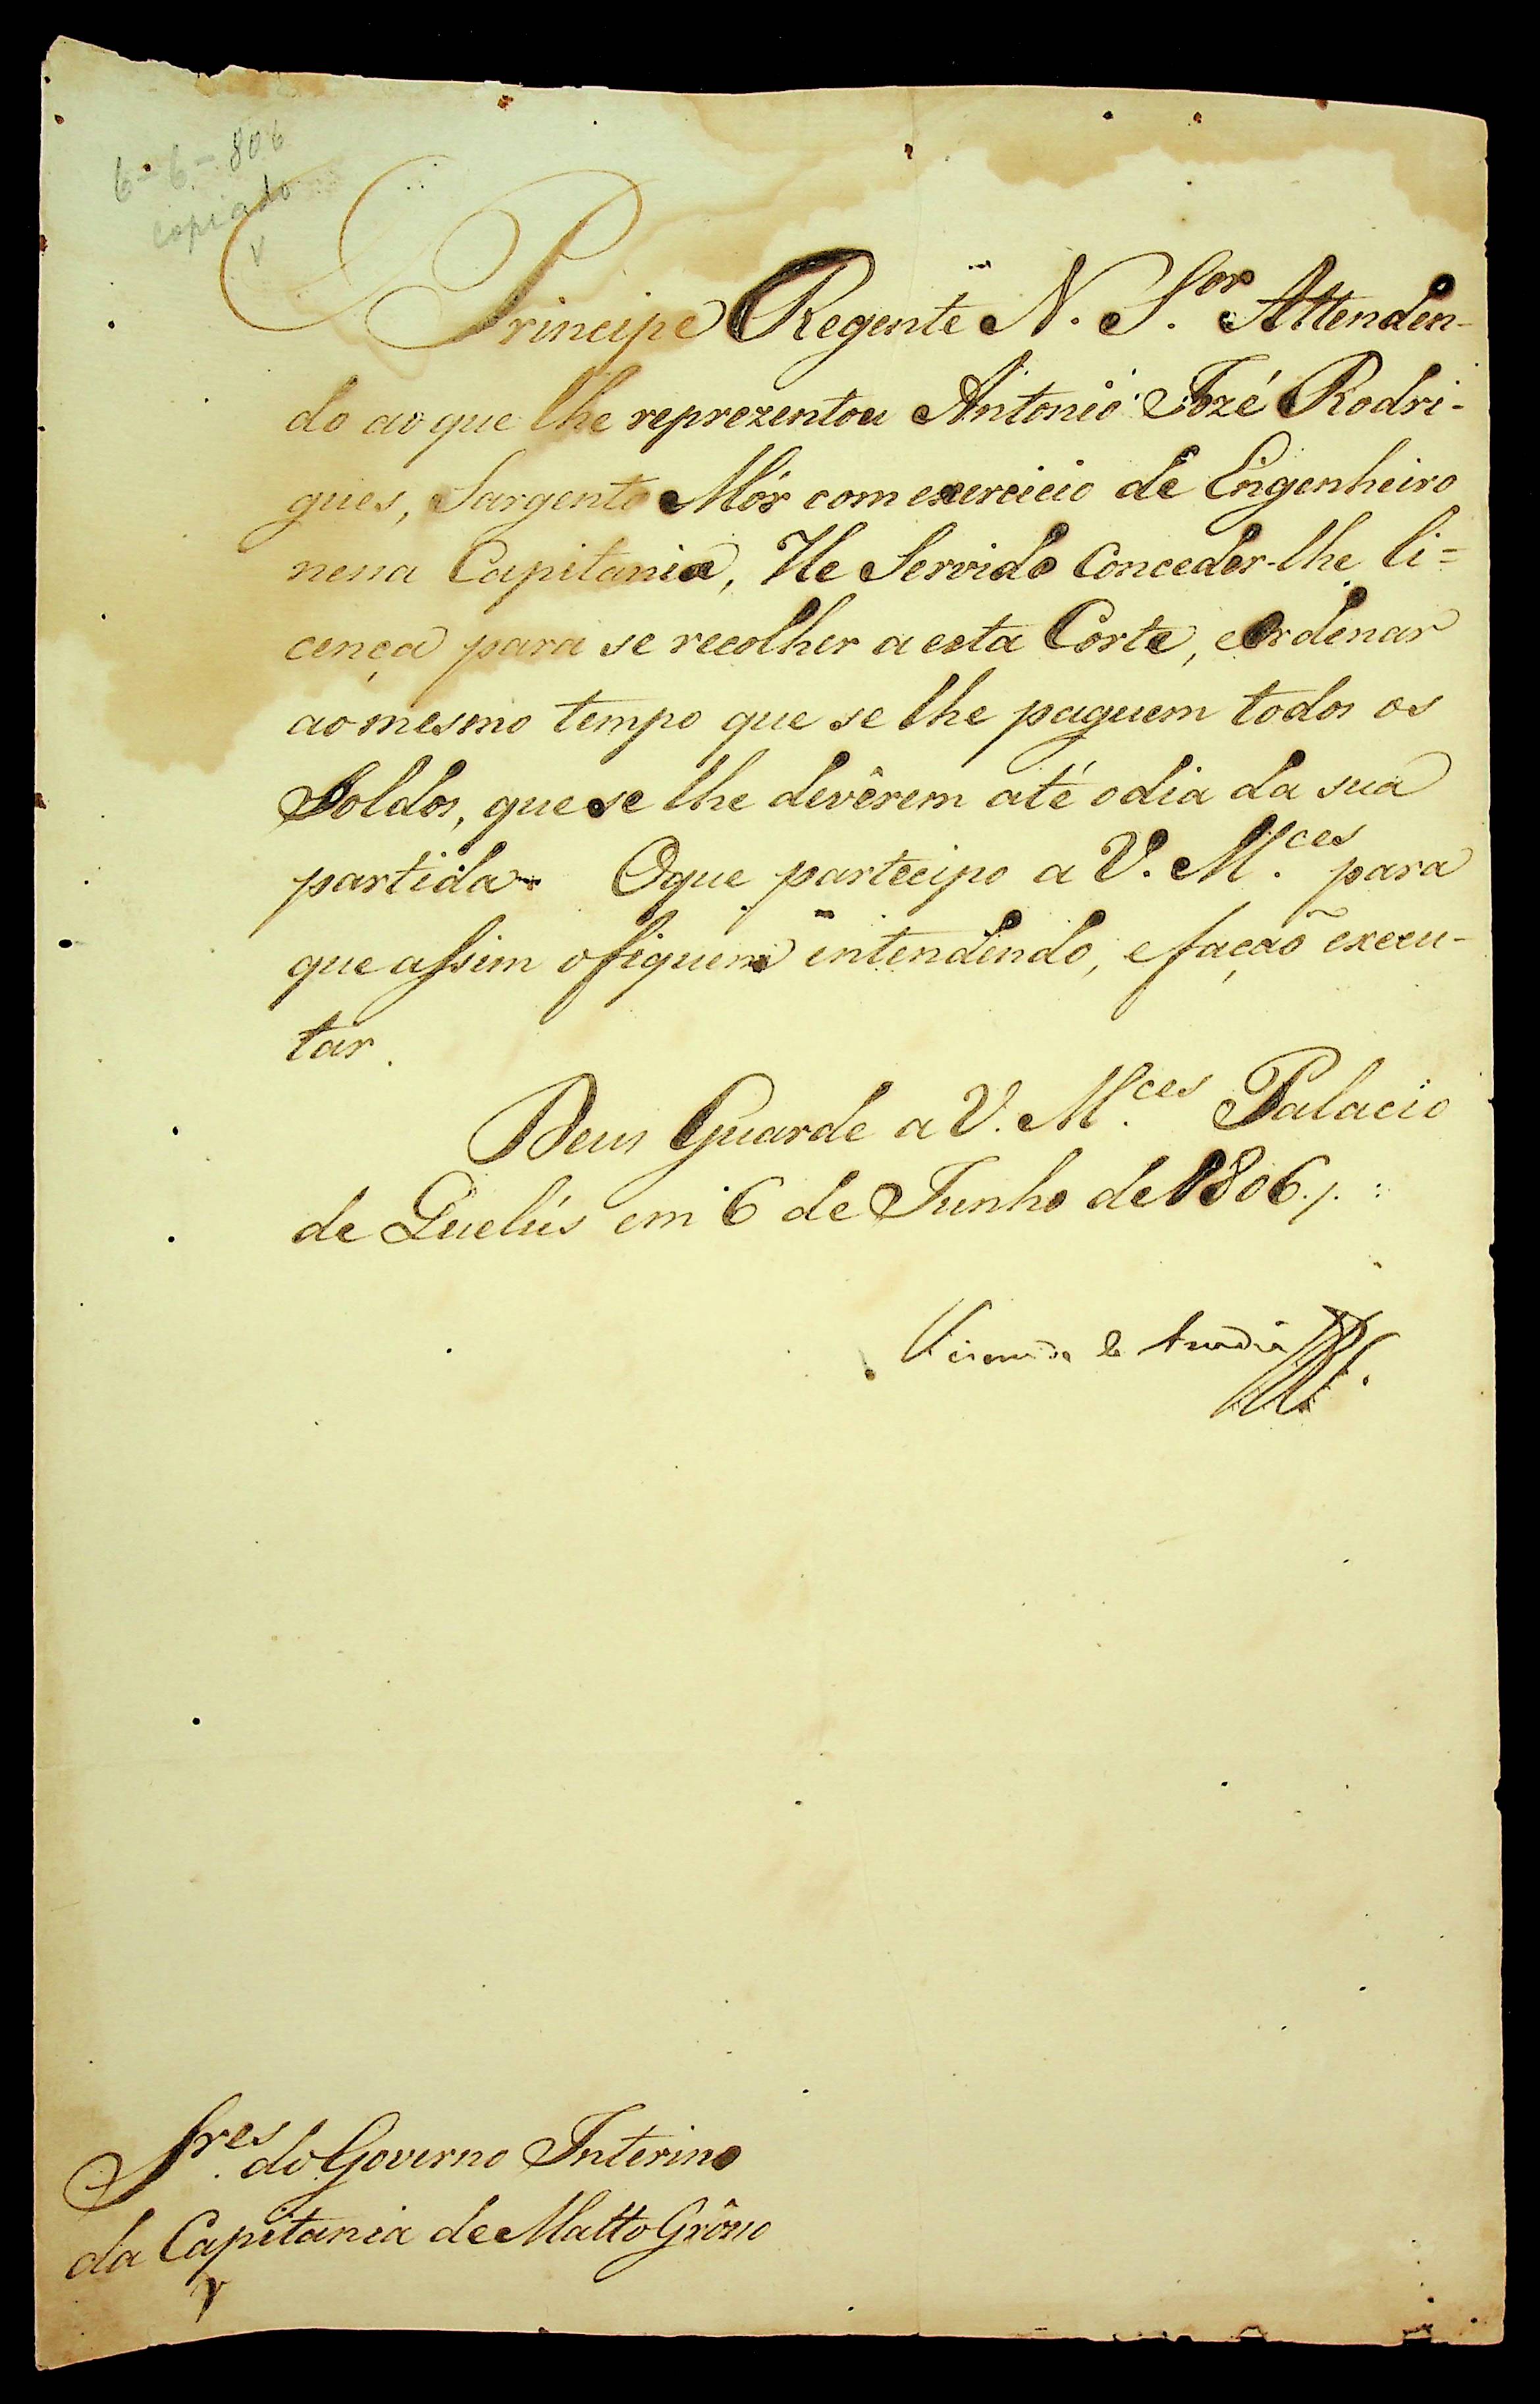 6-6-806
copiado
O Principe Regente N. S.or Attenden-
do ao que lhe reprezentou Antonio Jozé Rodri-
gues, Sargento Mór com exercicio de Engenheiro
nessa Capitania, He Servido Conceder-lhe li=
cença para se recolher a esta Corte, e Ordenar
ao mesmo tempo que se lhe paguem todos os
Soldos, que se lhe devêrem até o dia da sua
partida. O que partecipo a V. M.ces para
que assim o fiquem intendendo, e facão execu-
tar.
Deus Guarde a V. M.ces Palacio
de Quelús em 6 de Junho de 1806.
Visconde de Anadia
S.res do Governo Interino
da Capitania de Matto Grôsso